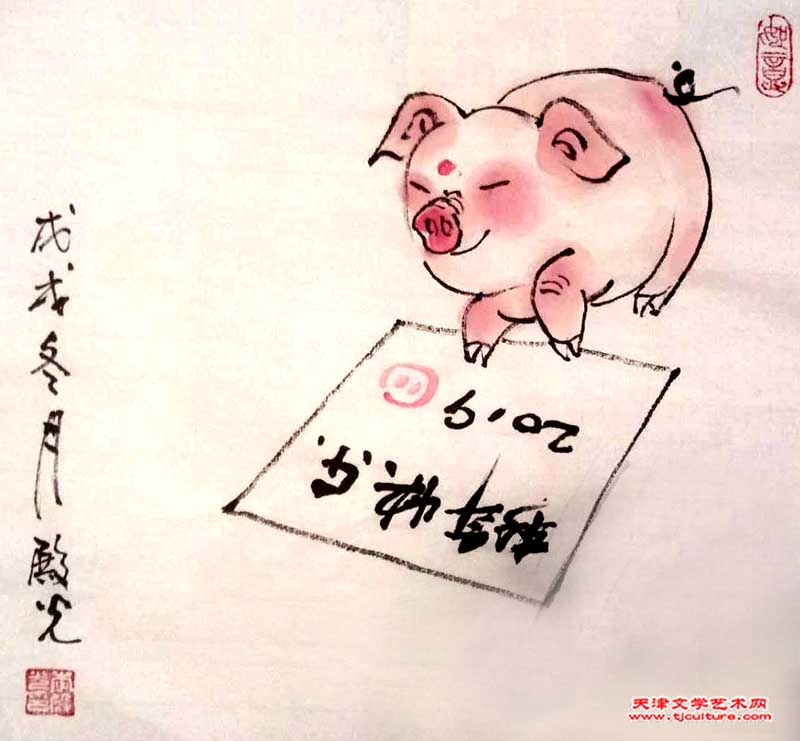 如意
新年快乐
2019
戊戌冬月殿光
天津文学艺术网
www.tjculture.com